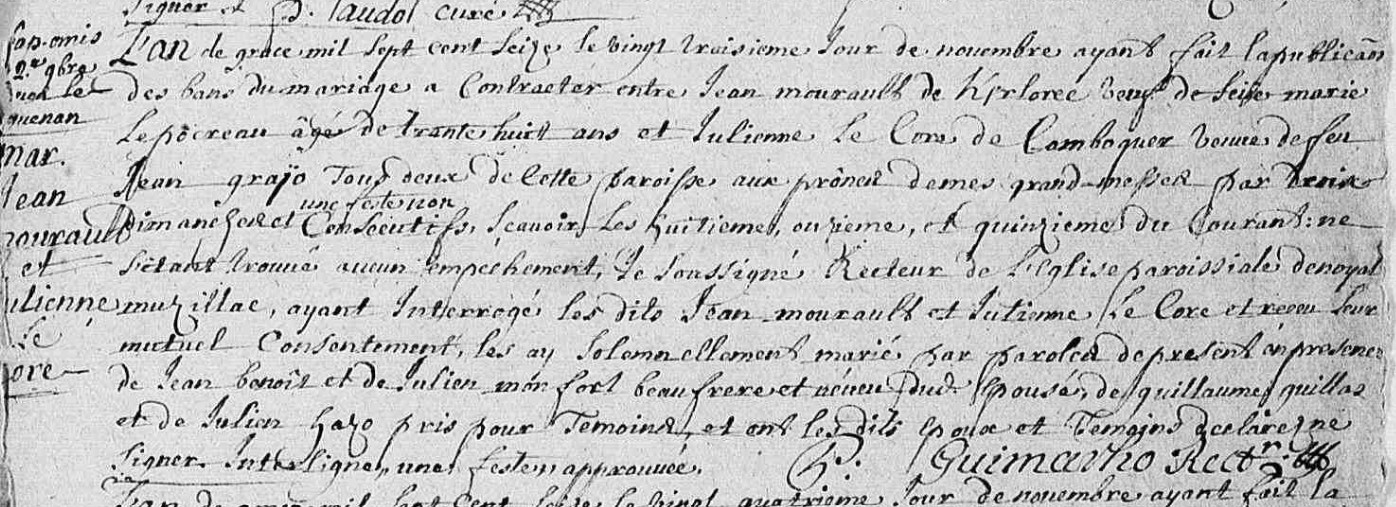 signer et P. Taudol curé
L'an de grace mil sept cent seize le vingt troisieme Jour de novembre ayant fait la publicaon
des bans du mariage a Contracter entre Jean mourault de Kerloree veuf de feüe marie
Le pocreau âgé de trante huit ans et Julienne Le Core de Camboquer veuve de feu
Jean grajo Tous deux de Cette paroisse aux prônes demes grand-messes par trois
une feste non
Dimanches et Consecutifs, sçavoir Les huitieme, onzieme, et quinzieme du Courant: ne
s'étant trouvé aucun empechement, Je soussigné Recteur de L'Eglise paroissiale de noyal
muzillac, ayant Interrogé les dits Jean mourault et Julienne Le Core et receu leur
mutuel Consentement, les ay solemnellement marié par paroles de present en presence
de Jean benoît et de Julien monfort beaufrere et néveu dud. Epousé, de guillaume guillas
et de Julien hazo pris pour Temoins, et ont les dits Epoux et Temoins declaré ne
signer. Interligne, une feste, approuvée. P. Guimarho Rectr.
L'an de grace mil sept Cent seize le vingt quatrieme Jour de novembre ayant fait la
mar.
Jean
mourault
et
Julienne
Le
Core